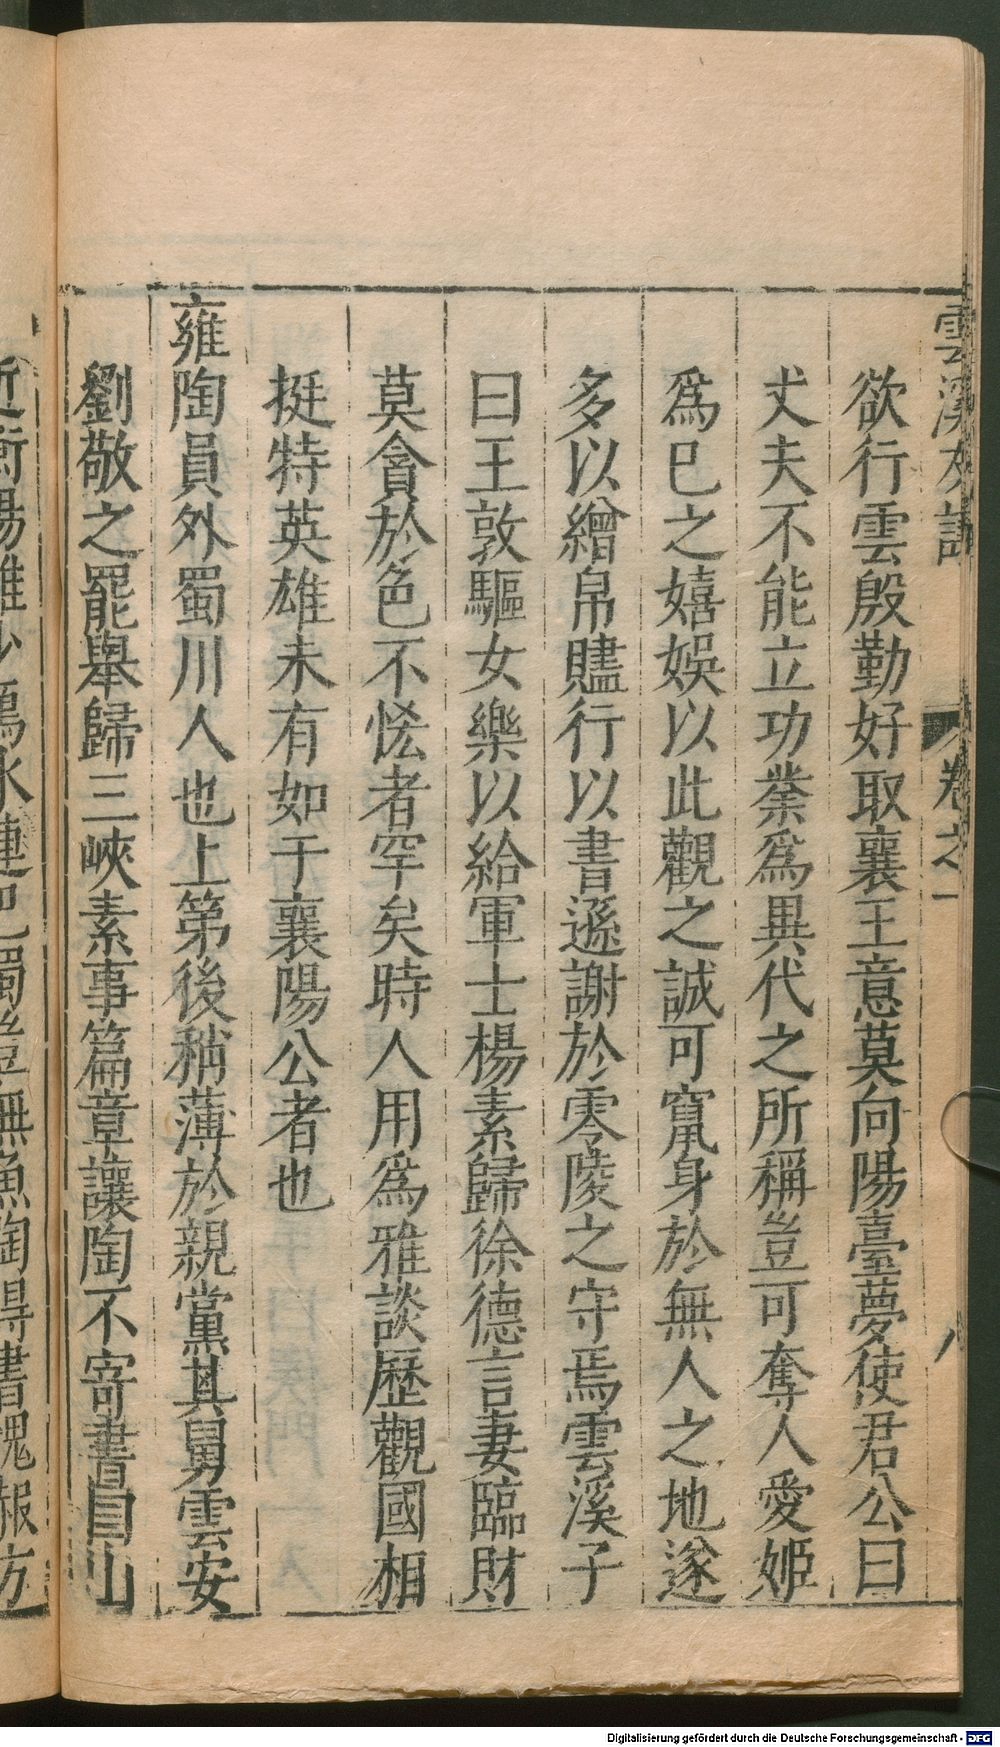 雲溪友議 卷之一 八
欲行雲殷勤好取襄王意莫向陽臺夢使君公曰
丈夫不能立功業爲異代之所稱豈可奪人愛姬
爲已之嬉娛以此觀之誠可竄身於無人之地遂
多以繒帛贐行以書遜謝於零陵之守焉雲溪子
曰王敦驅女樂以給軍士楊素歸徐德言妻臨財
莫貪於色不恡者罕矣時人用爲雅談歷觀國相
挺特英雄未有如于襄陽公者也
雍陶員外蜀川人也上第後稍薄於親黨其舅雲安
劉敬之罷舉歸三峽素事篇章讓陶不寄書曰山
近衡陽雖少鴈水連巴蜀豈無魚陶得書愧赧方
Digitalisierung gefördert durch die Deutsche Forschungsgemeinschaft - DFG